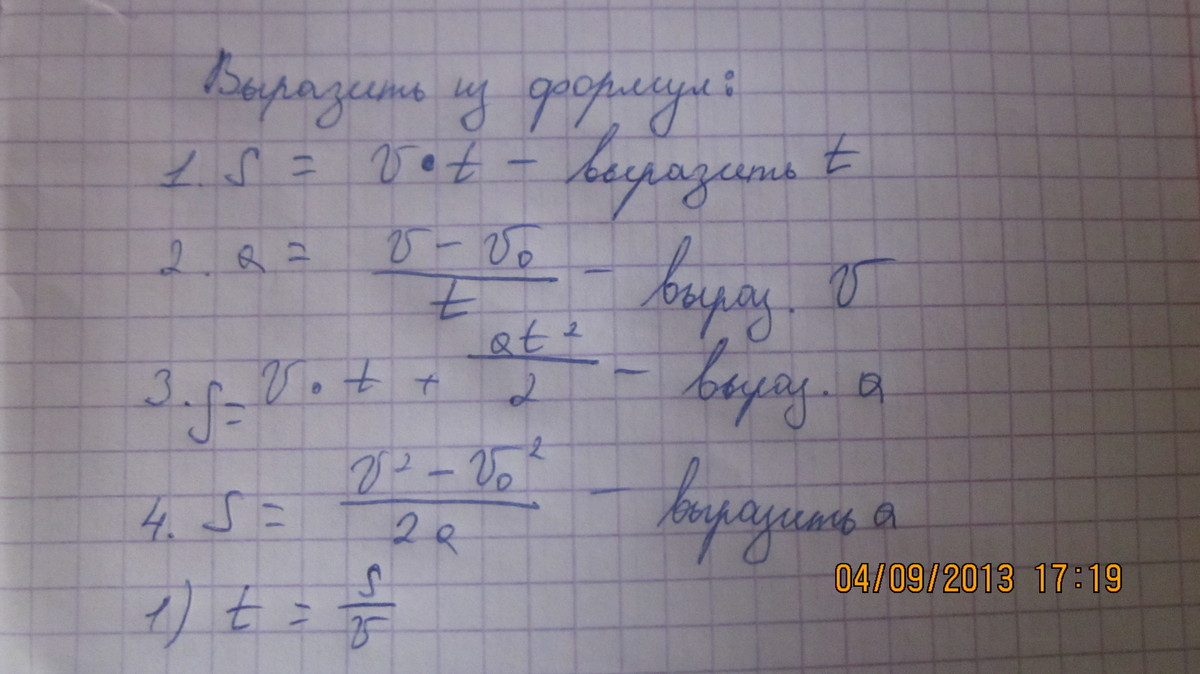 Выразить из формул:
1. S = v • t – выразить t
2. a = (v – v₀)/t – выраз. v
3. S = v • t + at²/2 – выраз. a
4. S = (v² – v₀²)/2a – выразить a
04/09/2013 17:19
1) t = S/v